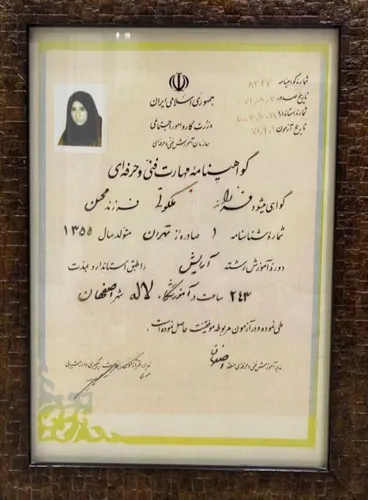 شماره گواهینامه ۸۳۲۷
تاریخ صدور
شماره استاندارد
تاریخ آزمون
جمهوری اسلامی ایران
وزارت کار و امور اجتماعی
سازمان آموزش فنی و حرفه‌ای
گواهینامه مهارت فنی و حرفه‌ای
گواهی میشود ملکوتی فرزند محسن
شماره شناسنامه ۱ صادره از تهران متولد سال ۱۳۵۵
دوره آموزش رشته آرایش را طبق استاندارد بمدت
۲۴۳ ساعت در آموزشگاه لاله شهر اصفهان
طی نموده و در آزمون مربوطه موفقیت حاصل نموده است.
مدیر آموزش فنی و حرفه‌ای منطقه اصفهان